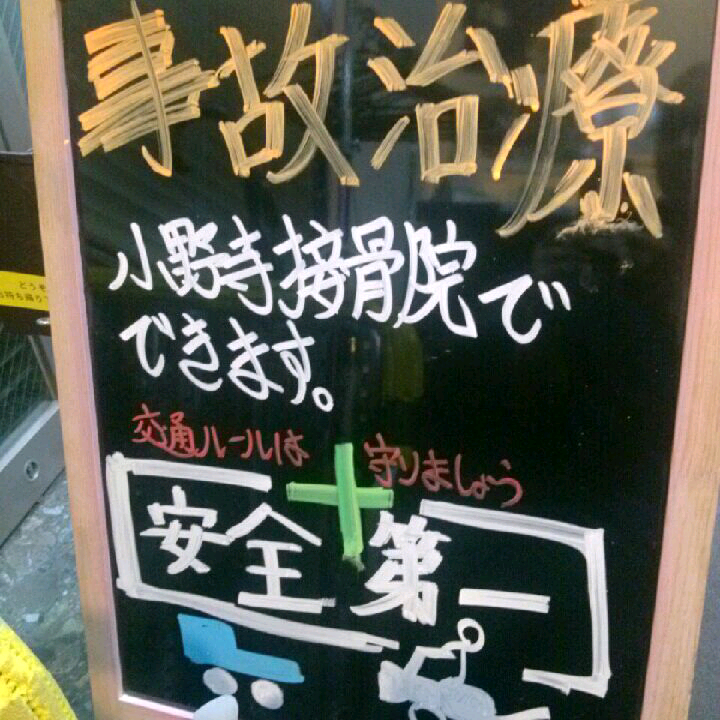 事故治療
小野寺接骨院で
できます。
交通ルールは 守りましょう
安全第一
どうぞ
お持ち帰り